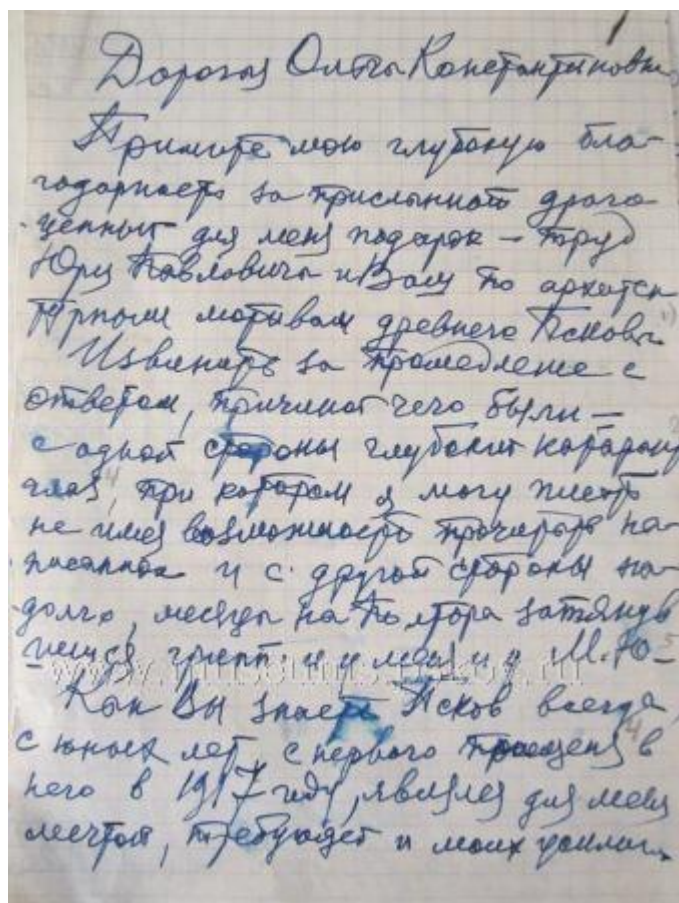 1
Дорогая Ольга Константиновна,
Примите мою глубокую бла-
годарность за присланный драго
ценный для меня подарок – труд
Юрия Павловича и Ваш по архитек
турным мотивам древнего Пскова
Извините за промедление с
ответом, причиной чего были –
с одной стороны глубокая катаракта
глаз, при котором я могу писать
не имея возможность прочитать на-
писанное и с другой стороны на-
долго, месяца на полтора затянув
шийся грипп и у меня и у М.Ю-
www.museums.pskov.ru
Как Вы знаете Псков всегда
с юных лет, с первого приезда в
него в 1917 году, являлся для меня
мечтой, требующей и моих усилий.